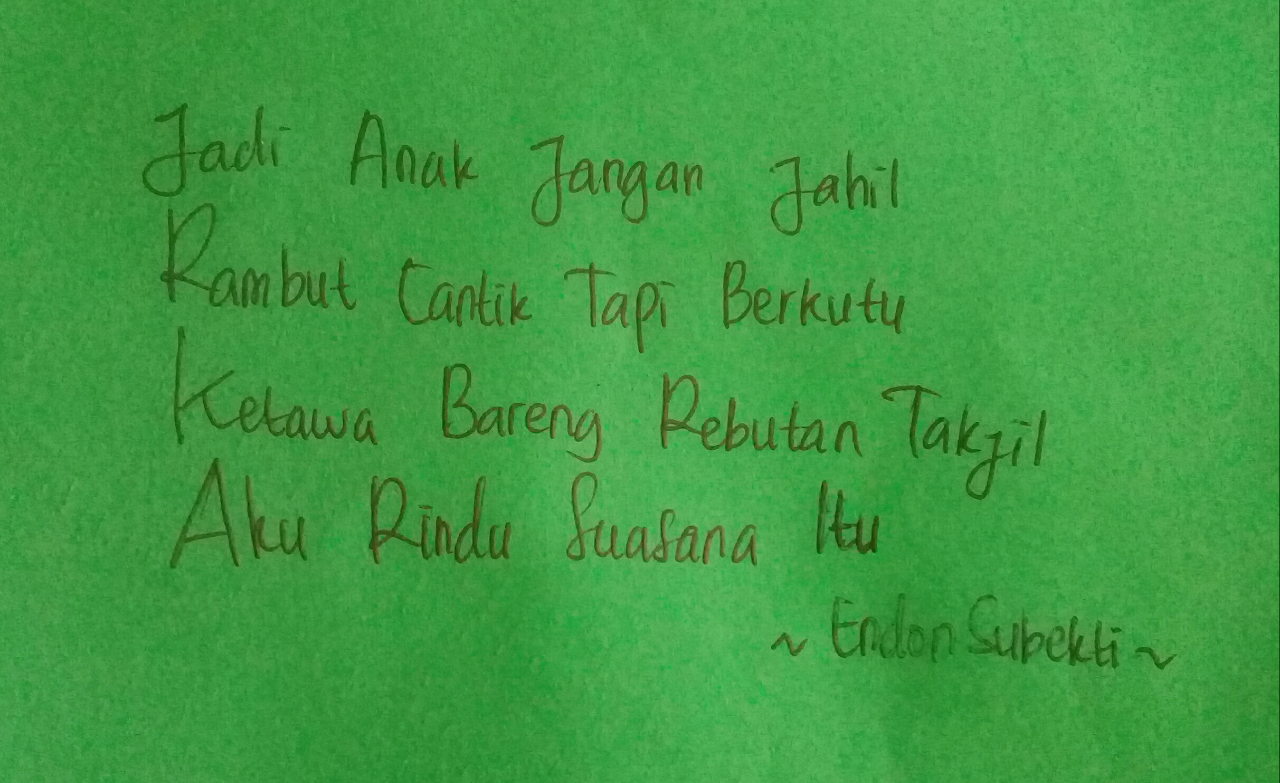 Jadi Anak Jangan Jahil
Rambut Cantik Tapi Berkutu
Ketawa Bareng Rebutan Takjil
Aku Rindu Suasana Itu
~ Endon Subekti ~